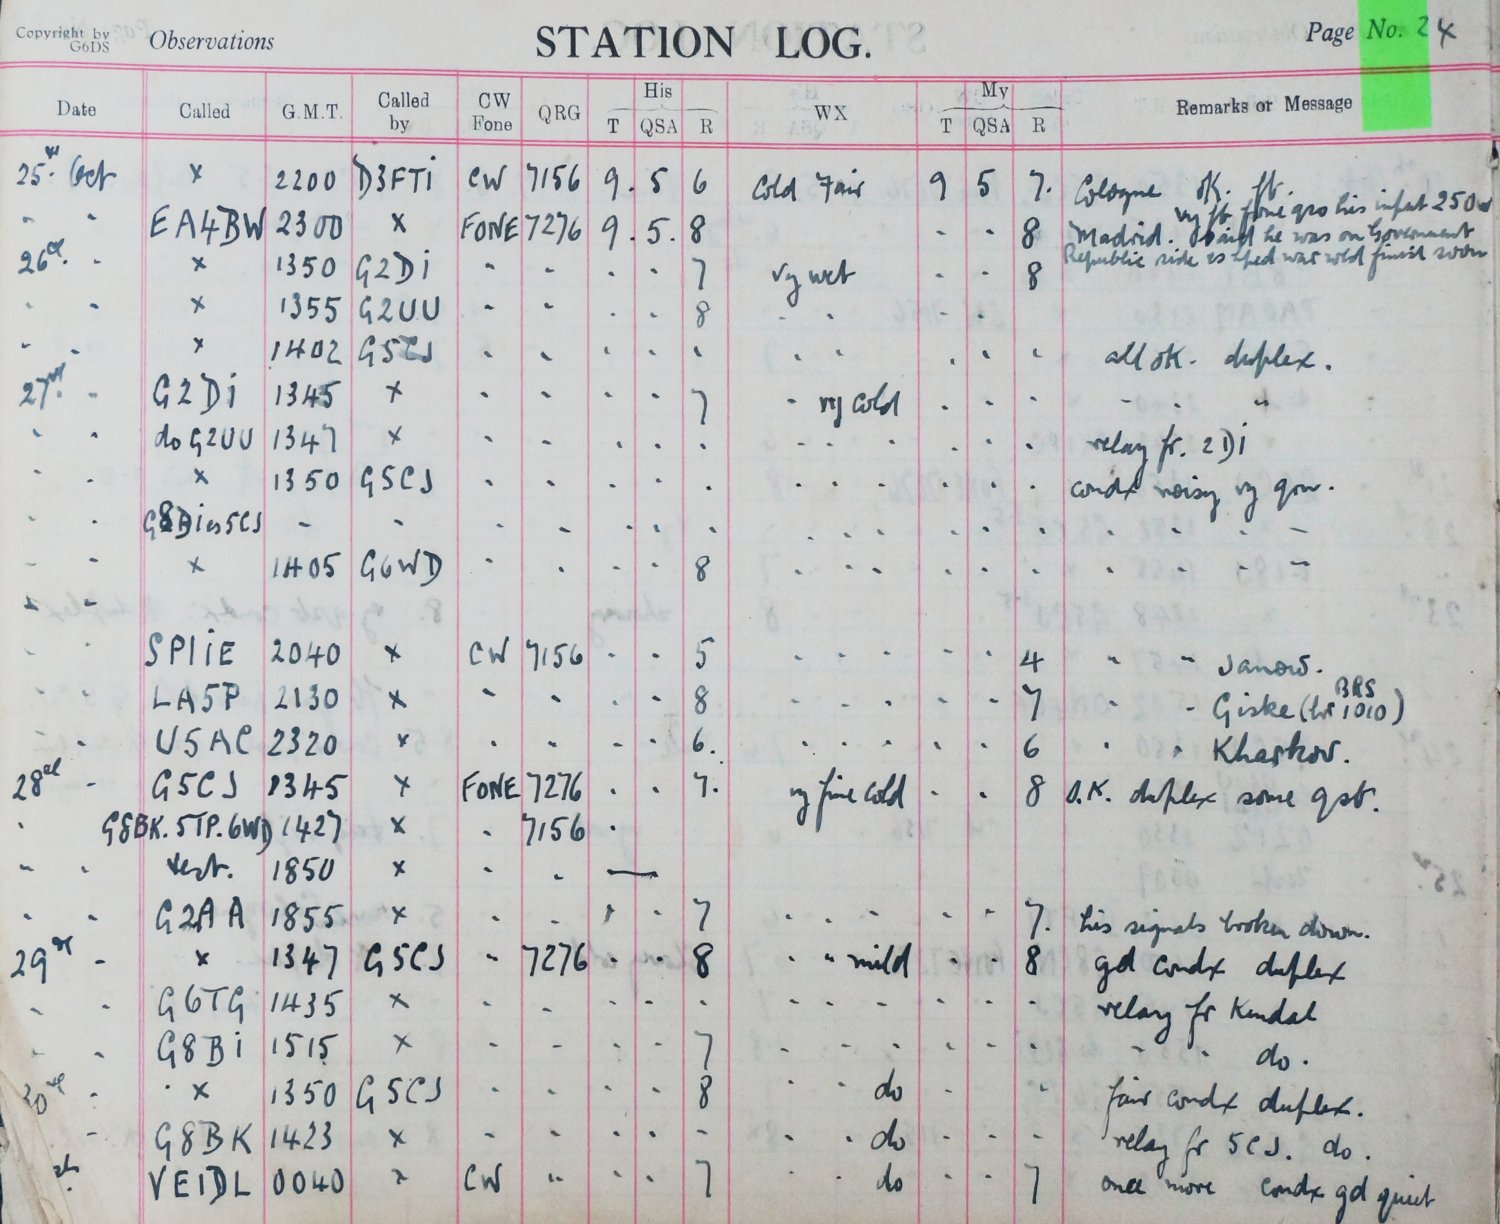 Copyright by G6DS Observations STATION LOG. Page No. 24
Date Called G.M.T. Called by CW Fone QRG His T QSA R WX My T QSA R Remarks or Message
25th Oct x 2200 D3FTi CW 7156 9. 5 6 Cold Fair 9 5 7. Cologne ok. fb.
" " EA4BW 2300 x FONE 7276 9. 5. 8 " " 8 Madrid. vy fb fone qro his input 250w Said he was on Government
26th " x 1350 G2Di " " " " 7 vy wet " " 8 Republic side & hped war wld finish soon
" " x 1355 G2UU " " " " 8 " " " "
" " x 1402 G5CJ " " " " " " " " " " all ok. duplex.
27th " G2Di 1345 x " " " " 7 " vy cold " " " " " "
" " do G2UU 1347 x " " " " " " " " " " " relay fr. 2Di
" " x 1350 G5CJ " " " " " " " " " " " condx noisy vy qrm.
" " G8Bi es 5CJ " " " " " " " " " " " " " " " "
" " x 1405 G6WD " " " " 8 " " " " " " " " " "
" "
" " SP1iE 2040 x CW 7156 " " 5 " " " " " 4 " " Janow.
" " LA5P 2130 x " " " " 8 " " " " " 7 " " Giske (hr BRS 1010)
" U5AC 2320 x " " " " 6. " " " " " 6 " " Kharkov.
28th " G5CJ 1345 x FONE 7276 " " 7. vy fine cold " " 8 O.K. duplex some qsb.
" G8BK. 5TP. 6WD 1427 x " 7156 "
" " test. 1850 x " " —
" " G2AA 1855 x " " " " 7 " " " " " 7. his signals broken down.
29th " x 1347 G5CJ " 7276 " " 8 " " mild " " 8 gd condx duplex
" " G6TG 1435 x " " " " " " " " " " " relay fr Kendal
" " G8Bi 1515 x " " " " 7 " " " " " " " " do.
" x 1350 G5CJ " " " " 8 " " do " " fair condx duplex.
" G8BK 1423 x " " " " " " " do " " " relay fr 5CJ. do.
VE1DL 0040 x CW " " " 7 " " do " " 7 once more condx gd quiet